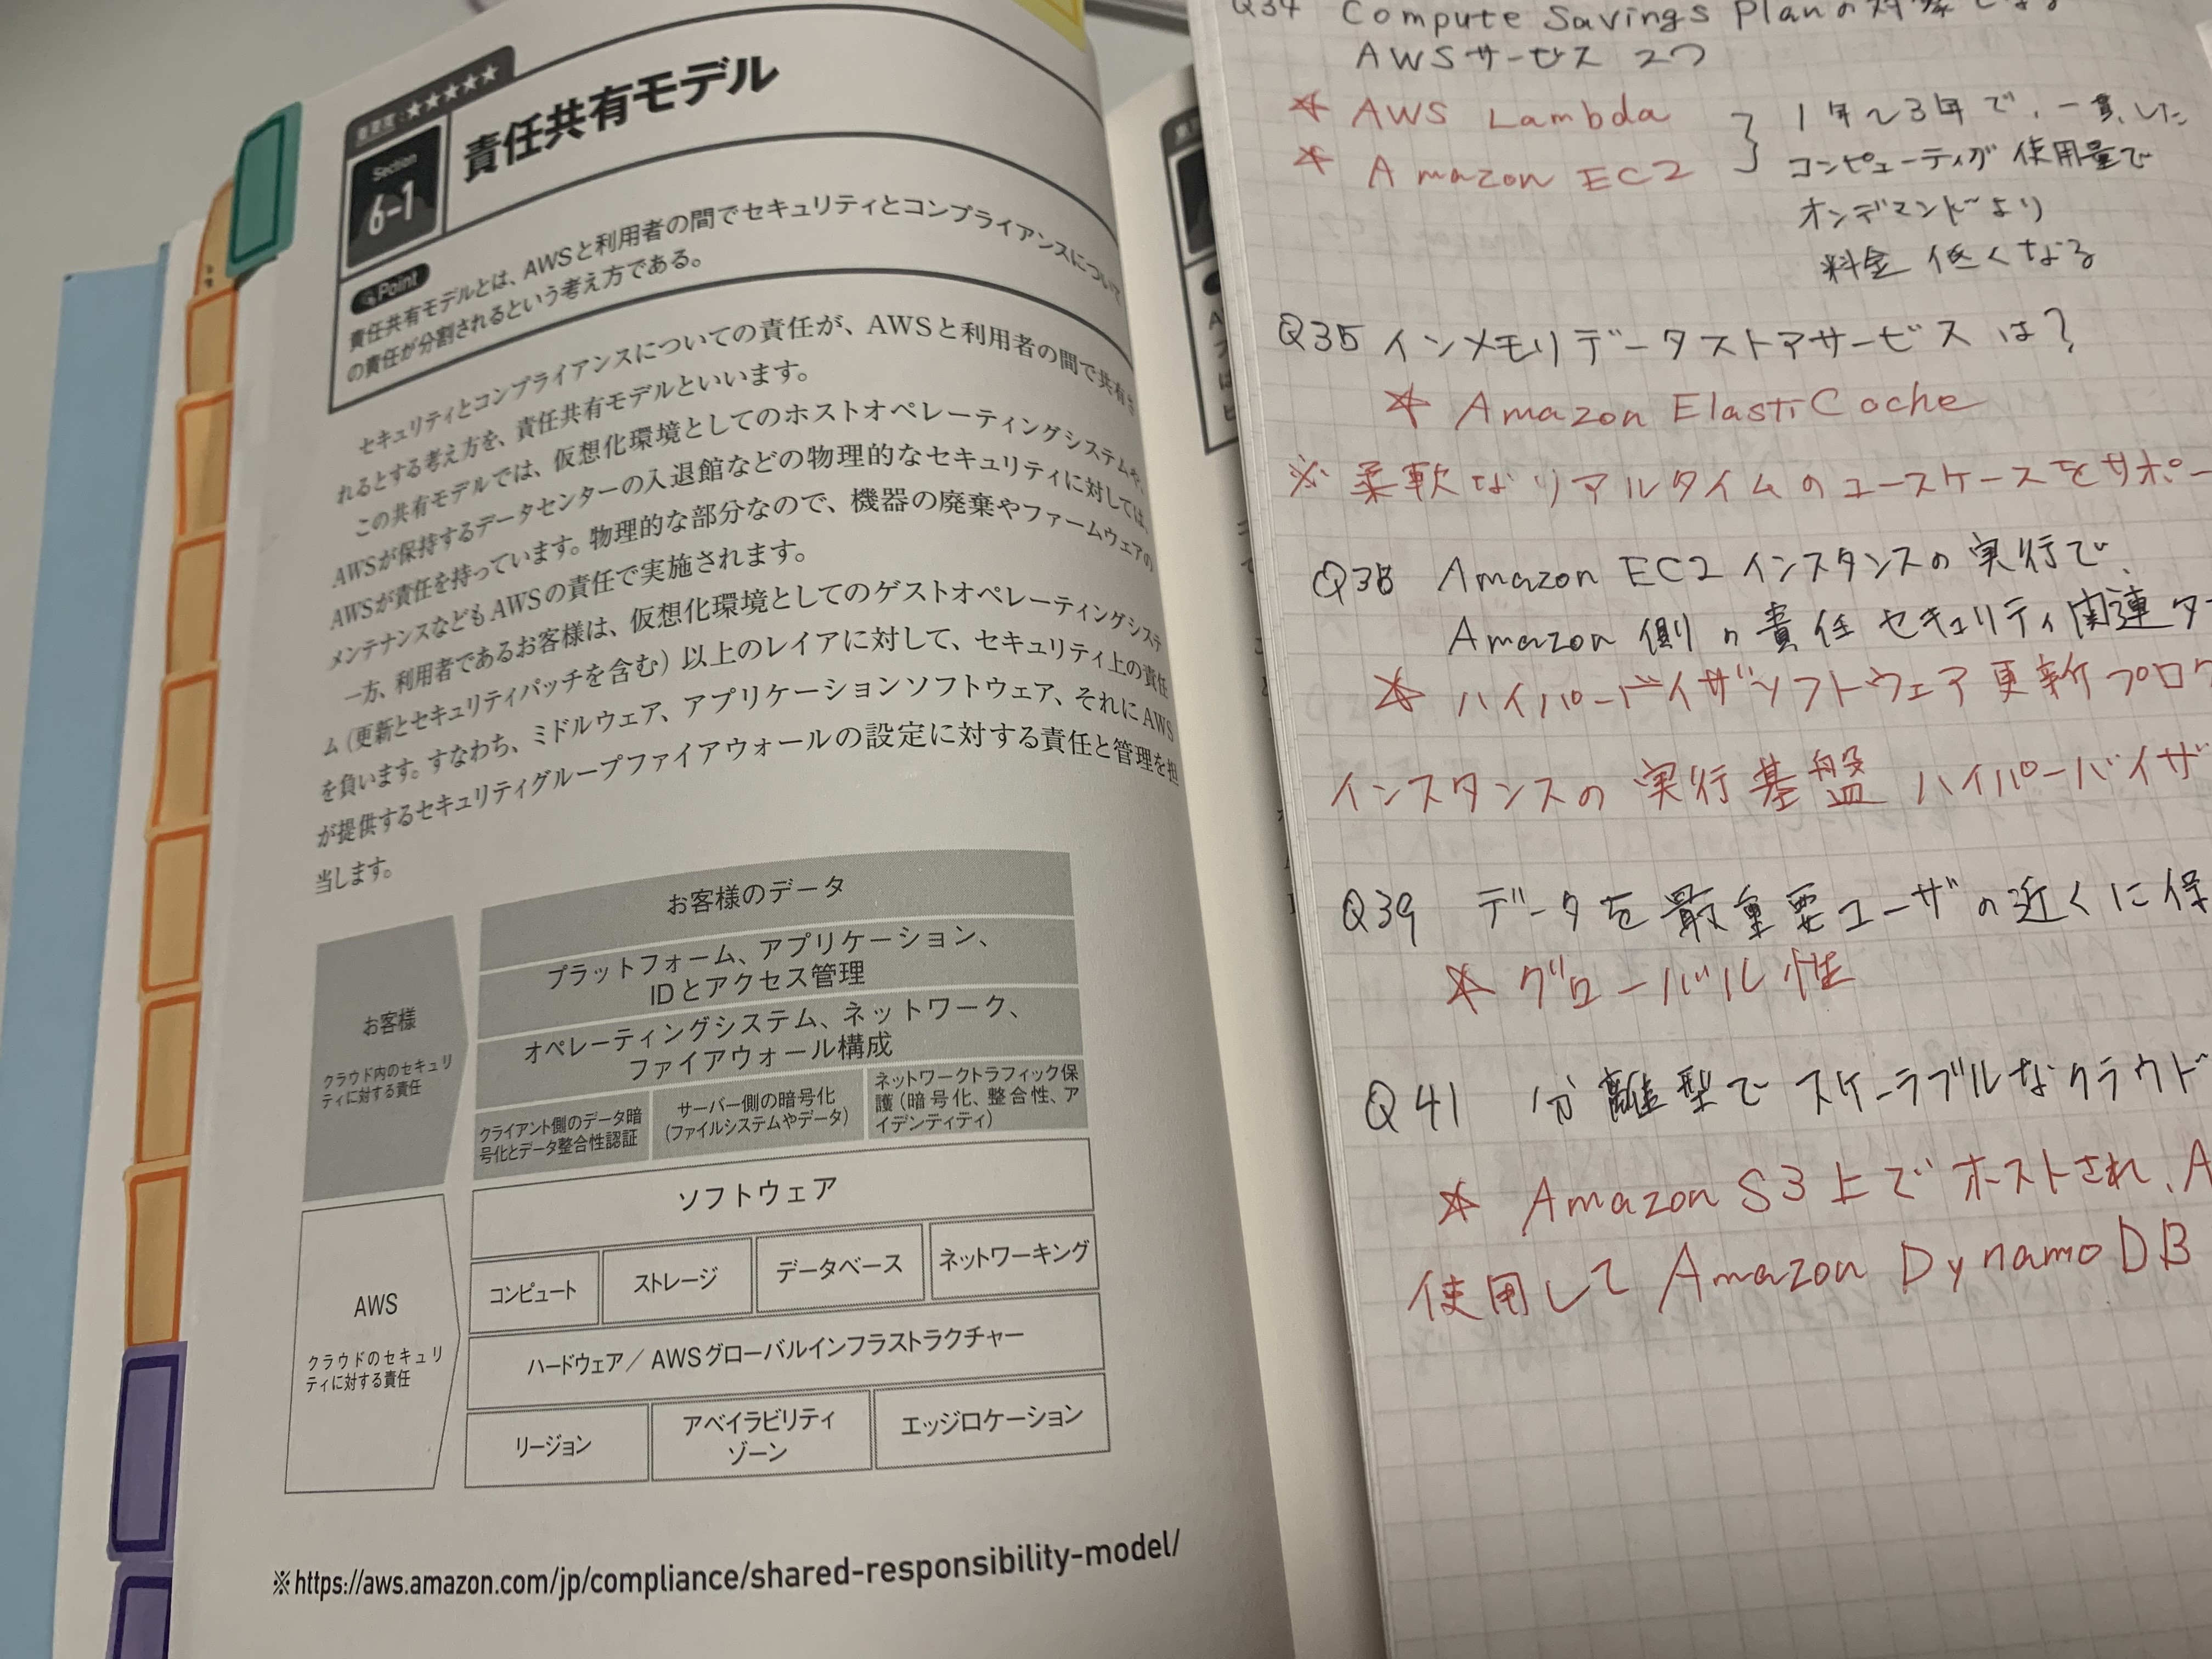 重要度：★★★★★
Section
6-1
責任共有モデル
Point
責任共有モデルとは、AWSと利用者の間でセキュリティとコンプライアンスについて
の責任が分割されるという考え方である。
セキュリティとコンプライアンスについての責任が、AWSと利用者の間で共有さ
れるとする考え方を、責任共有モデルといいます。
この共有モデルでは、仮想化環境としてのホストオペレーティングシステムや、
AWSが保持するデータセンターの入退館などの物理的なセキュリティに対しては、
AWSが責任を持っています。物理的な部分なので、機器の廃棄やファームウェアの
メンテナンスなどもAWSの責任で実施されます。
一方、利用者であるお客様は、仮想化環境としてのゲストオペレーティングシステ
ム（更新とセキュリティパッチを含む）以上のレイアに対して、セキュリティ上の責任
を負います。すなわち、ミドルウェア、アプリケーションソフトウェア、それにAWS
が提供するセキュリティグループファイアウォールの設定に対する責任と管理を担
当します。
お客様
クラウド内のセキュリ
ティに対する責任
お客様のデータ
プラットフォーム、アプリケーション、
IDとアクセス管理
オペレーティングシステム、ネットワーク、
ファイアウォール構成
クライアント側のデータ暗
号化とデータ整合性認証
サーバー側の暗号化
（ファイルシステムやデータ）
ネットワークトラフィック保
護（暗号化、整合性、ア
イデンティティ）
AWS
クラウドのセキュリ
ティに対する責任
ソフトウェア
コンピュート
ストレージ
データベース
ネットワーキング
ハードウェア／AWSグローバルインフラストラクチャー
リージョン
アベイラビリティ
ゾーン
エッジロケーション
※https://aws.amazon.com/jp/compliance/shared-responsibility-model/
Q34 Compute Savings Planの対象となる
AWSサービス 2つ
* AWS Lambda
* Amazon EC2
1年〜3年で、一貫した
コンピューティング使用量で
オンデマンドより
料金低くなる
Q35 インメモリデータストアサービスは？
* Amazon ElastiCache
※柔軟なリアルタイムのユースケースをサポー
Q38 Amazon EC2インスタンスの実行で、
Amazon側の責任セキュリティ関連タ
* ハイパードバイザソフトウェア更新プログ
インスタンスの実行基盤 ハイパーバイザ
Q39 データを最重要ユーザの近くに保
* グローバル性
Q41 分離型でスケーラブルなクラウド
* Amazon S3上でホストされ、A
使用して Amazon DynamoDB